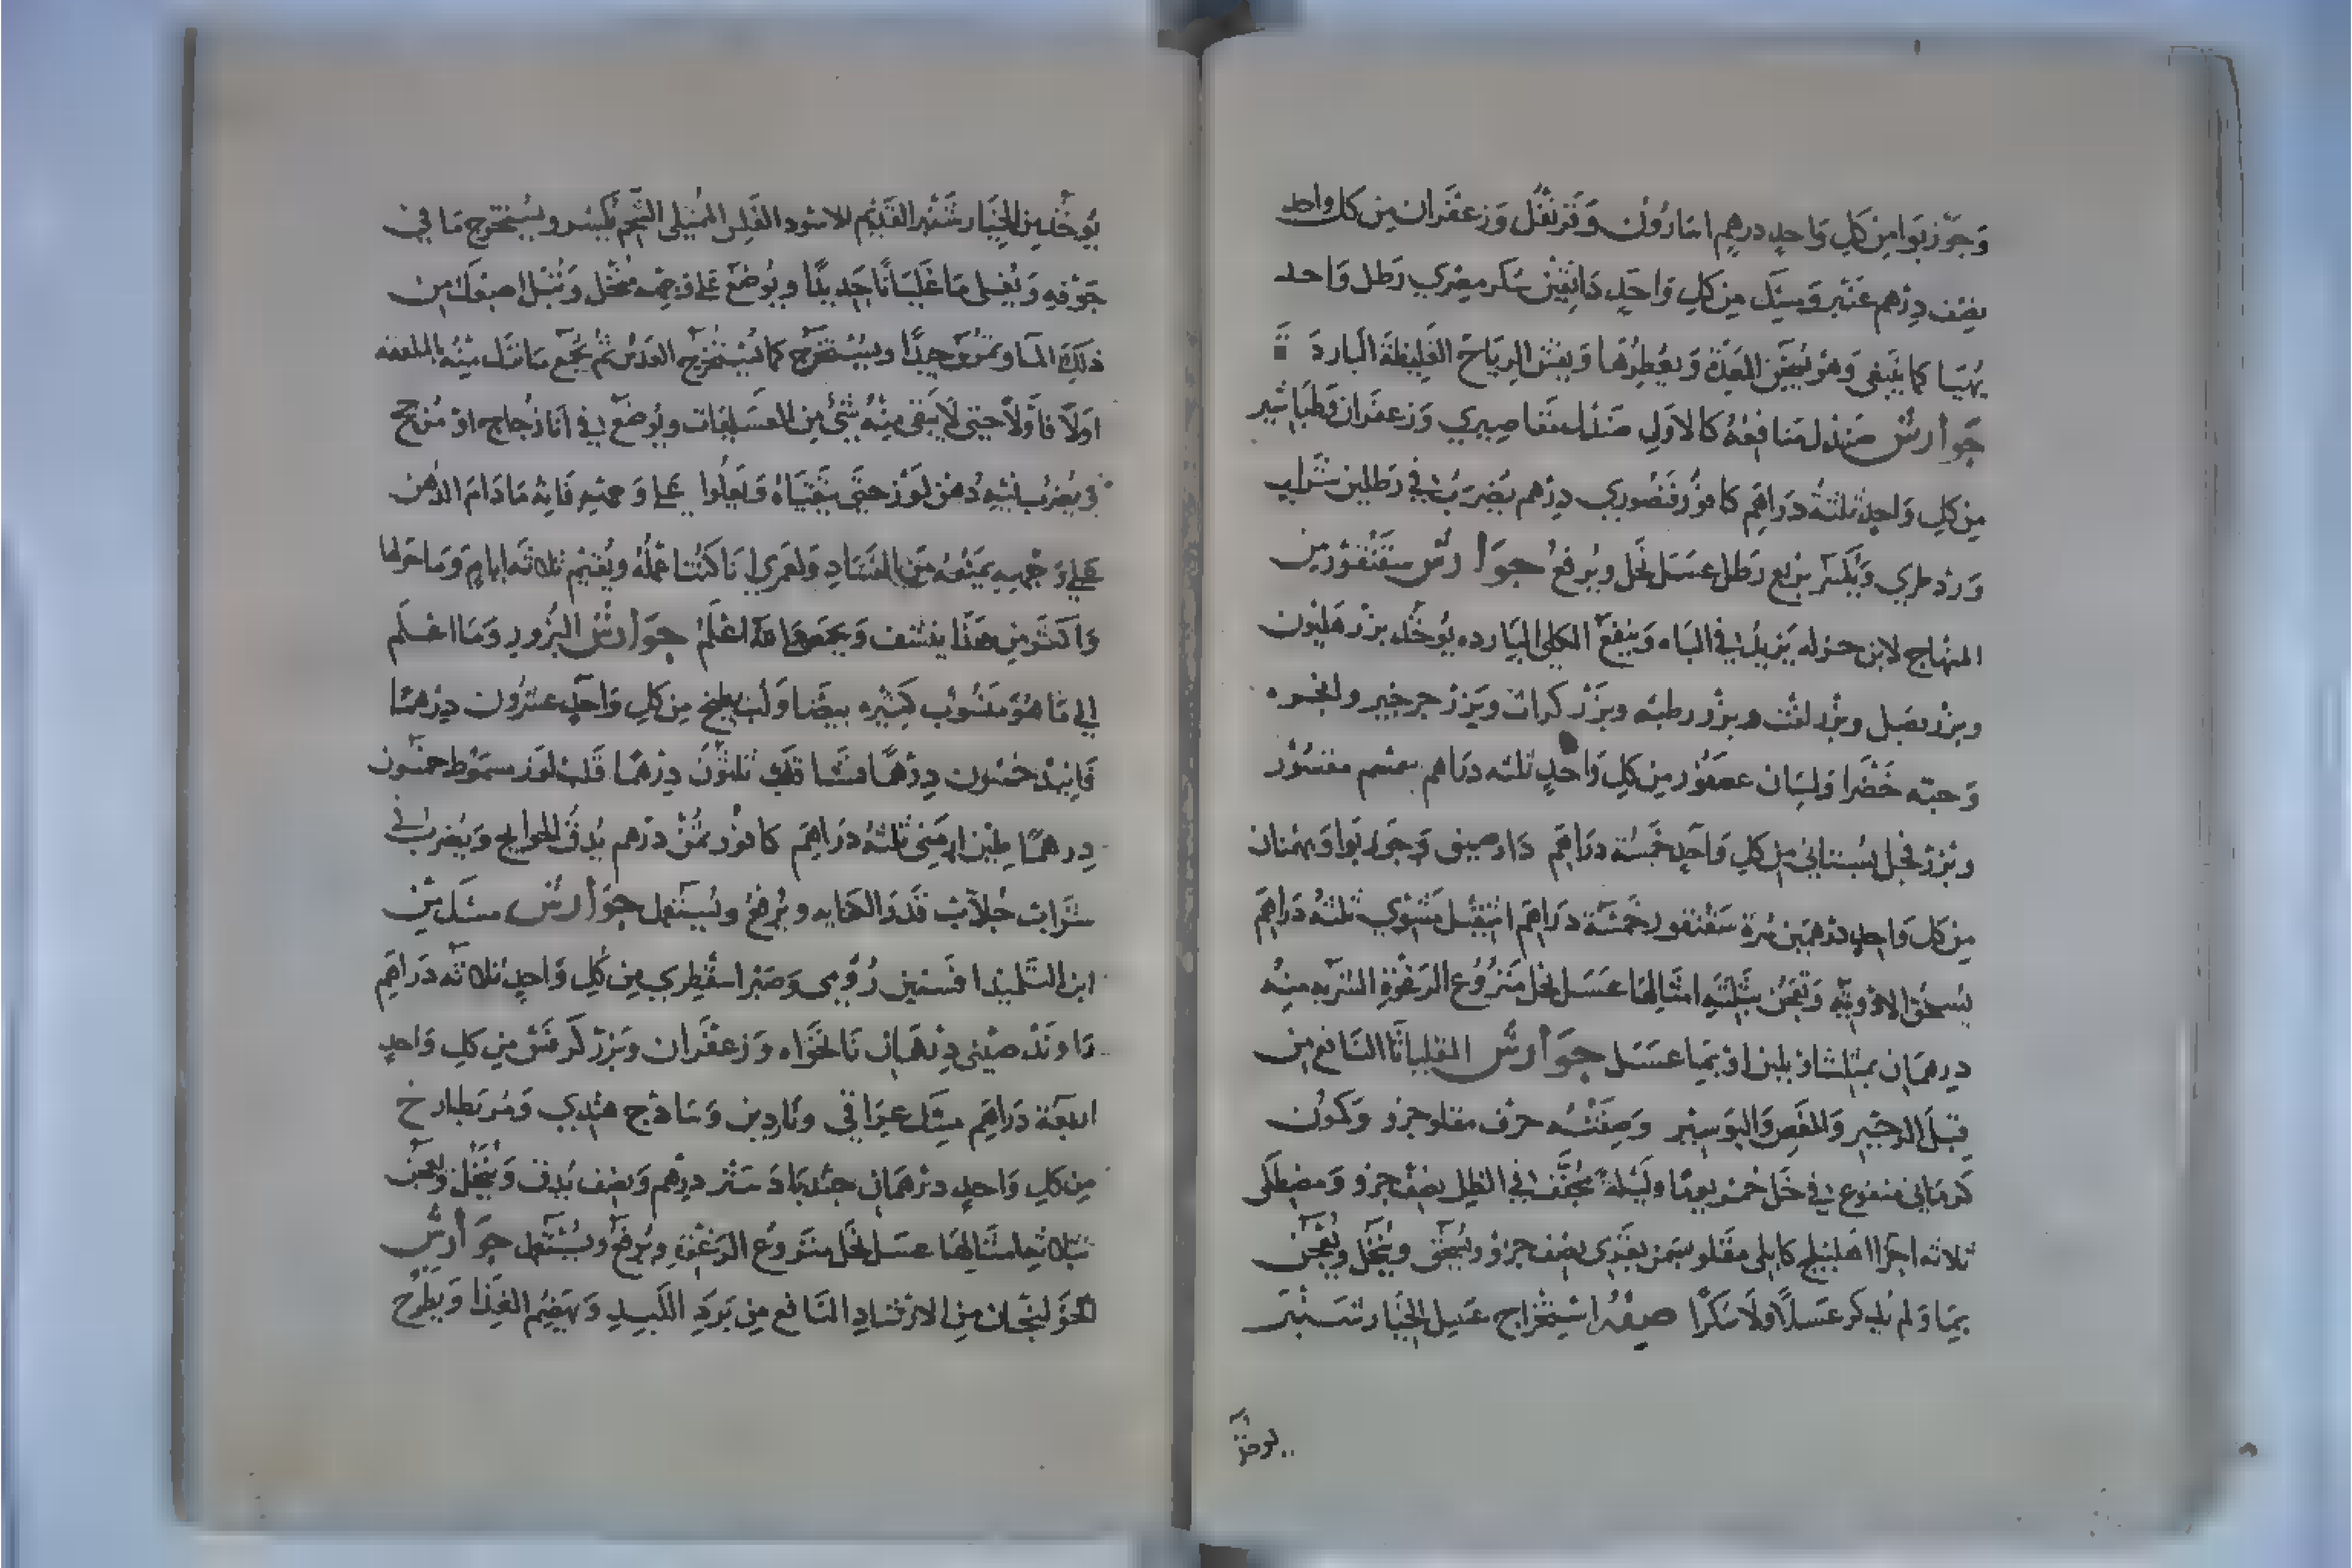 وَجَوزبَوا مِن كلِ وَاحدٍ درهم اسَارُون وَقَرَنفُل وَزعفَران مِن كل واحد
نصف دِرهم عنبَر وَمِسك مِن كلِ وَاحدٍ دَانِقَين سُكر مِصري رَطل وَاحد
يُهيَا كما يَنبَغى وَهوَ يُسَخن المعِدَة وَيعَطِرُهَا وَيفش الرِيَاحَ الغَلِيظَة البَاردَة
جَوارش صَندل مَنافِعُهُ كالاوَلِ صَندَل مقاصِيري وَزعفَران وَطبَاشير
مِن كلِ وَاحدٍ ثلثَةُ دَرَاهِم كافور فَنصُوري دِرهم يُضرَبُ في رَطلين شَراب
وَرد طري وَيُكسَر بربع رَطل عسَل نحل ويُرفعُ جوَارش سقَنقور من
المنهَاج لابن جزله يَزيدُ في البَاه وَينفعَ الكلى البَارده يُوخَذ بزر هَليُون
وبزر بصَل وبزر لفت وبزر رطبَه وبزر كراث وبَزر جرجير وانجره
وَحبّه خَضرا وَلسَان عصفور مِن كلِ وَاحدٍ ثلثه درَاهم سمسم مقشور
وبَزر فجل بُستَانيِ مِن كلِ وَاحدٍ خَمسَة درَاهِم دَارصِيني وَجوزبَوا وَبهمنَان
مِن كل وَاحدٍ درهَمين سُرة سَقَنقور خَمسَة درَاهِم اشقِيل مَشوي ثلثة دَراهِم
يُسحَق الادوِيَه وَتعجَن بثلثةِ امثَالِهَا عسَل نحل مَنزُوع الرغوَةِ الشربه مِنهُ
دِرهمَان بمثلثٍ او بلبن او بمَا عسَل جوَارش المقليَاثا النَافع من
قبَل الزحِير وَالمغَص وَالبَوَسِير وَصِفَتُه حرف مقلو جزو وَكمون
كرمَانِي منقوع في خل خمر يومًا ولَيلة مجفف في الظِل نصف جزو وَمصطَكى
ثلاثه اجزَا اهليلج كابلي مقلو بسَمن بقَري نصف جزؤ ويُسحَق ويُنخَل ويُعجَن
بمَا وَلم يذكر عسَلاً ولاَ سُكرًا صِفَة استِخرَاج عسَل الخيَارشَنبَر
يوخذ
يُوخَذ مِن الخِيَار شَنبر القَديم الاسود الممتلي يُكسر ويُستخرج مَا في
جَوفِهِ وَيُغلى مَا غلَيَانًا جَديدًا ويُوضَع عَلى وَجه مُنخُل وَتبل اصبعَك مِن
ذلِكَ المَا وتمرس جيِدًا ويُستَخرَج كما يُستخرَج العَدس ثم يجمَع مَا نزل مِنه بالملعقه
اولاً فاولاً حتى لاَ يَبقى مِنهُ شَئ مِن العسَل ويُوضَع في انا زجاج او
ويُضرب دُهن لوز حتى وَيَعلوا عَلى وَجهِهِ فانه مَا دَامَ الدُهن
عَلى وَجههِ يمنَعُه مِن الفسَادِ وَلعَمرِي ويُقيم ثلاثَة ايام وَمَا حولهَا
وَاكثر مِن هذا ينشف وَالله اعلَم جوَارش البُزورِ وَمَا اعلَم
الي مَا هو منسُوب كثيره بيضَا وَلب بطيخ مِن كلِ وَاحدٍ عشرُون دِرهمًا
فَانِيذ خمسُون دِرهمًا نشا ثلثون دِرهمًا قلب لوز سمَوط خمسُون
دِرهمًا طِين ارمَني ثلثة درَاهِم كافور ثمن درهم يُدق الحوَايج وَيُضرب في
شرَاب جُلاب قَدر الكفايه ويُرفعُ ويُستَعمل جوَارش مسك من
ابن التلميذ افسنتين رُومِي وَصَبر اسقُطري مِن كلِ وَاحِدٍ ثلاثه دَراهِم
رَاونَد صيني دِرهمَان نَانخوَاه وَزعفَران وَبَزر كَرفس مِن كلِ وَاحدٍ
اربعَة دَراهِم مِسك عِرَاقي ونَاردِين وَسَاذج هندِي وَمُر بطارخ
مِن كلِ وَاحدٍ درهمَان جندبَادَستر درهم وَنصف يُدق وَيُنخَل وَيُعجَن
بثلاثة امثالهَا عسَل نحل منزوع الرغوَةِ ويُرفَع ويُستَعمل جوَارش
الخوَلنجَان مِن الارشَادِ النَافع مِن بَردِ الكَبِدِ وَيَهضِم الغِذَا وَيطرح